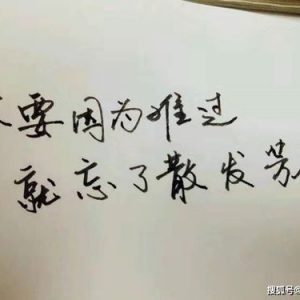 要因为难过
就忘了散发
搜狐号@